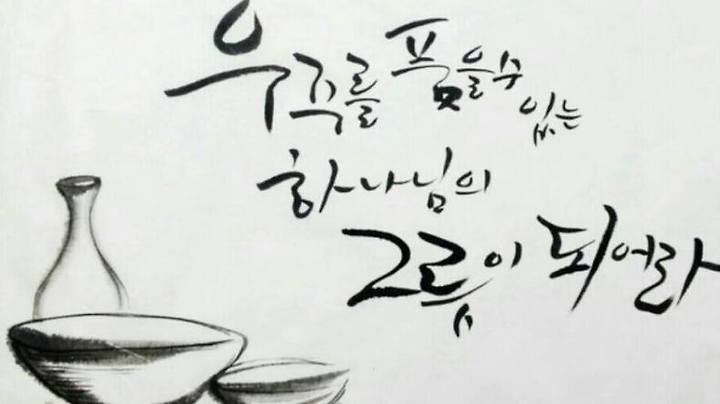 우주를 품을수 있는
하나님의
그릇이 되어라